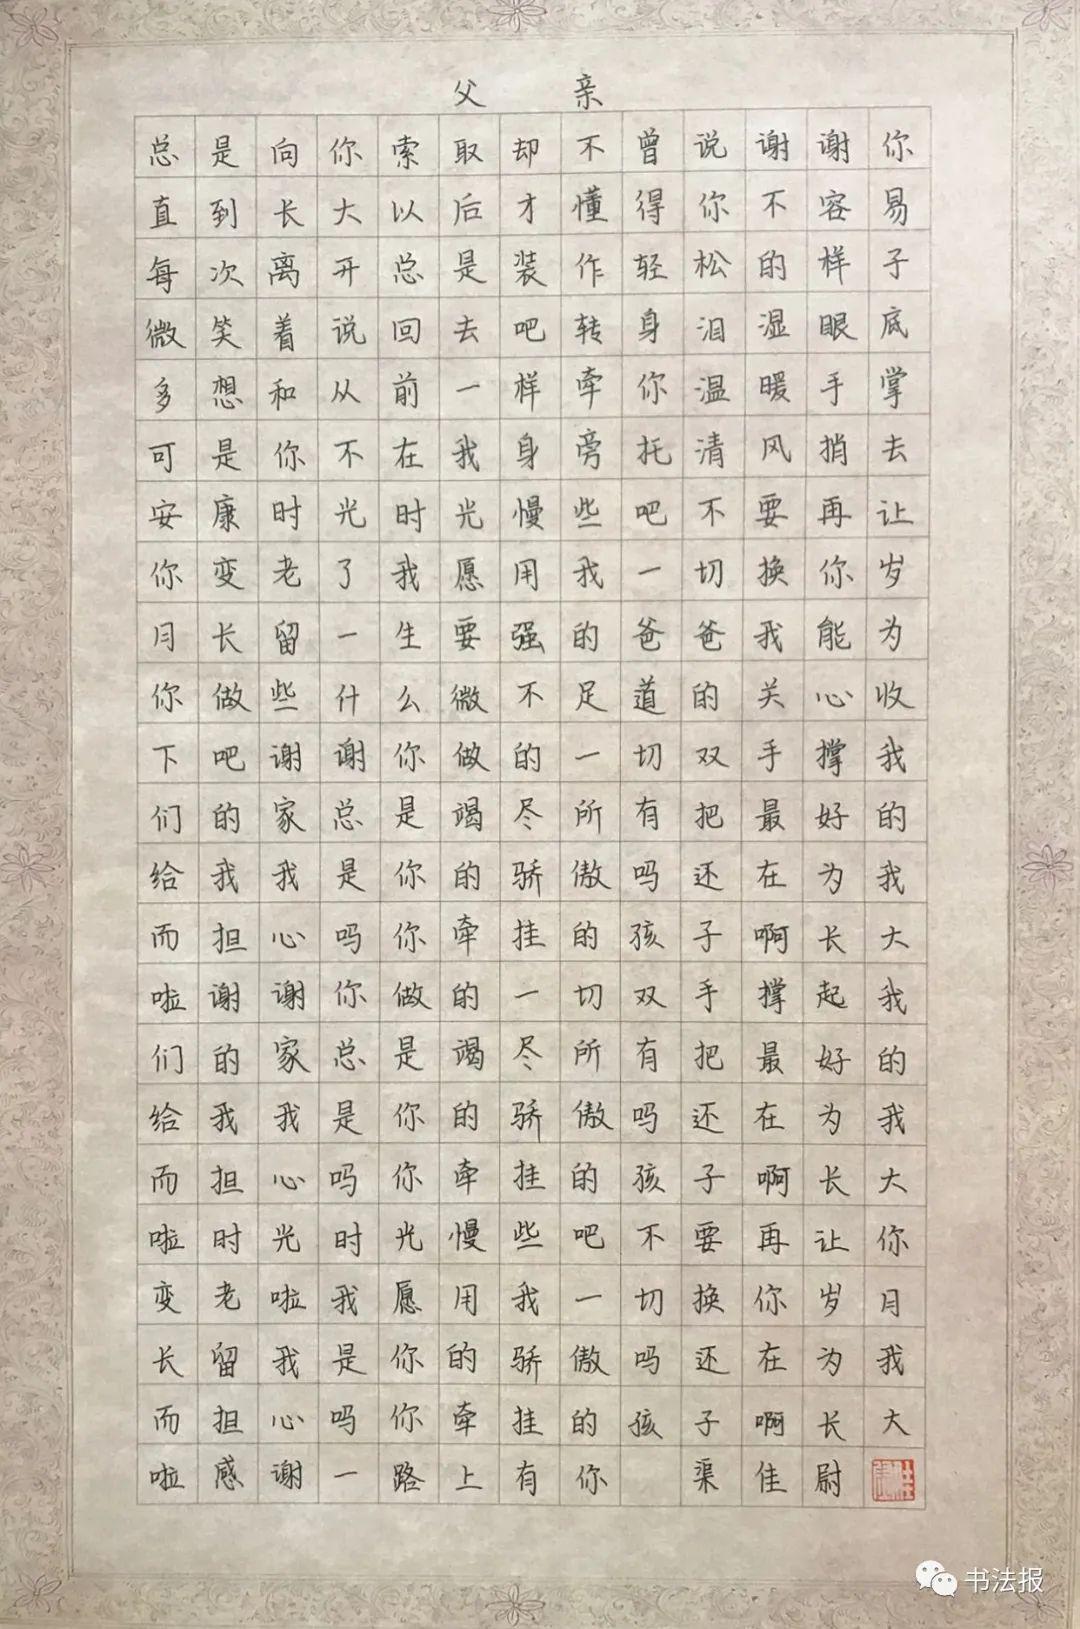 父亲
总是向你索取却不曾说谢谢你
直到长大以后才懂得你不容易
每次离开总是装作轻松的样子
微笑着说回去吧转身泪湿眼底
多想和从前一样牵你温暖手掌
可是你不在我身旁托清风捎去
安康时光时光慢些吧不要再让
你变老了我愿用我一切换你岁
月长留一生要强的爸爸我能为
你做些什么微不足道的关心收
下吧谢谢你做的一切双手撑我
们的家总是竭尽所有把最好的
给我我是你的骄傲吗还在为我
而担心吗你牵挂的孩子啊长大
啦谢谢你做的一切双手撑起我
们的家总是竭尽所有把最好的
给我我是你的骄傲吗还在为我
而担心吗你牵挂的孩子啊长大
啦时光时光慢些吧不要再让你
变老啦我愿用我一切换你岁月
长留我是你的骄傲吗还在为我
而担心吗你牵挂的孩子啊长大
啦感谢一路上有你 渠佳尉
书法报